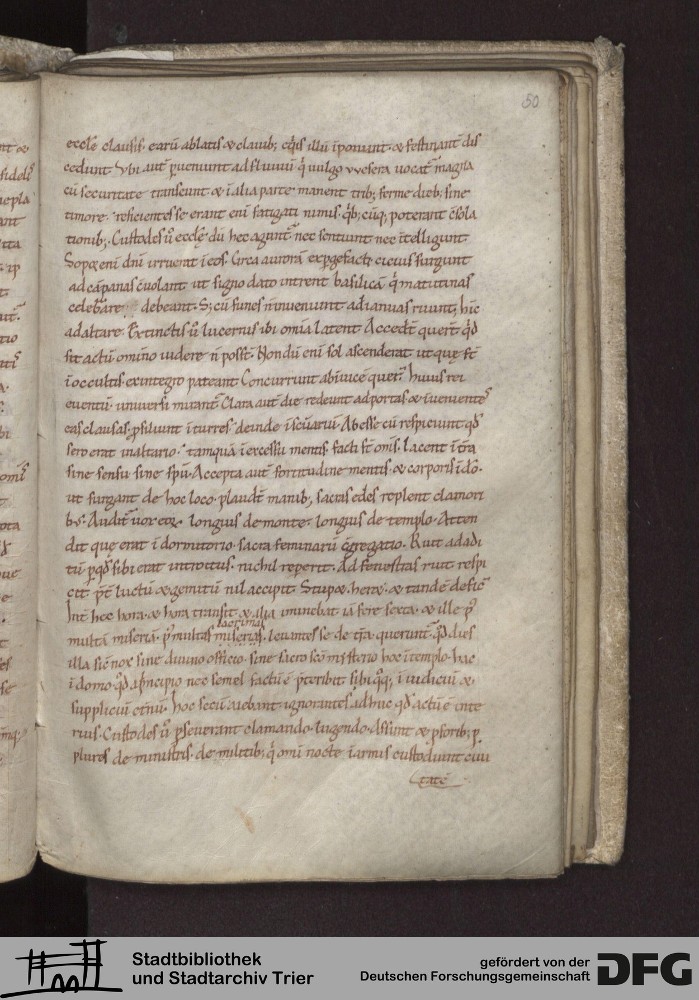 50
eccłę clausis earū ablatis & clauib; eq̇s illū īponunt & festinant dis
cedunt. Vbi aut̄ ꝑueniunt ad fluuiū q̇ uulgo vvesera uocat᷑ magna
cū securitate transeunt & ī alia parte manent trib; ferme dieb; sine
timore. reficientes se erant enī fatigati nimis q̇b; cūq; poterant ɔ̄sola
tionib;. Custodes ū ecclę dū hec agunt᷑ nec sentiunt nec ītelligunt
Sopor enī dn̄i irruerat ī eos. Circa aurorā exꝑgefacti cicius surgunt
ad cāpanas ɔ̄uolant ut signo dato intrent basilicā q̇ matutinas
celebrare debeant. S; cū funes n̄ inueniunt ad ianuas ruunt, hīc
ad altare. Extinctis ū lucernis ibi omīa latent Accedt̄ quert̄ q̇d
sit actū omīno uidere n̄ posst̄. Nondū enī sol ascenderat ut quę st̄
ī occultis ex integro pateant Concurrunt ab īuicē quer᷑t huius rei
euentū uniuersi mirant᷑ Clara aut̄ die redeunt ad portas & īuenientes
eas clausas ꝓsiliunt ī turres deinde ī scūariū. Abesse cū respiciunt qd̄
sero erat in altario. tamquā ī excessu mentis facti st̄ om̄s. Iacent ī t̄ra
sine sensu sine sp̄u. Accepta aut̄ fortitudine mentis & corporis ī dō.
ut surgant de hoc loco. plaudt̄ manib; sacras edes replent clamori
b;. Audit᷑ uox eoꝝ longius de monte. longius de templo. Atten
dit quę erat ī dormitorio sacra feminarū ɔ̄gregatio. Ruit ad adi
tū ꝑ qd̄ sibi erat introitus. nichil reperit. Ad fenestras ruit respi
cit p̄t luctū & gemitū nil accipit. Stup& her& & tandē defic᷑
Int̄ hec hora & hora transit & illa iminebat iā fere sexta. & ille p᷒
multā miseriā. p᷒ multas miserias lacrimas leuantes se de t̄ra querunt᷑ qd̄ dies
illa sic̄ nox sine diuino officio. sine sacro sc̄o misterio hoc ī templo. hac
ī domo qd̄ a principio nec semel factū ē p̄teribit sibi q̇q; ī iudiciū &
suppliciū etnū. hoc secū aiebant ignorantes adhuc qd̄ actū ē inte
rius. Custodes ū ꝑseuerant clamando lugendo. Assunt & p̄orib; ꝑ
plures de ministris. de militib; q̇ omī nocte ī armis custodiunt ciui
tatē
Stadtbibliothek
und Stadtarchiv Trier
gefördert von der
Deutschen Forschungsgemeinschaft
DFG